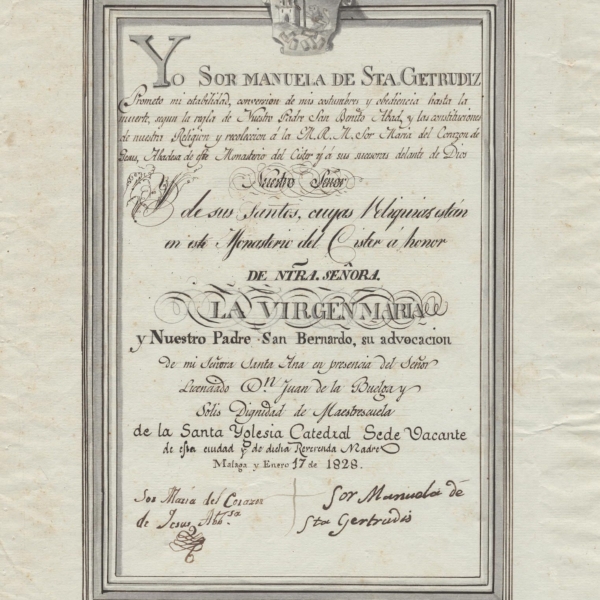 Yo Sor Manuela de Sta. Getrudiz
Prometo mi estabilidad, conversion de mis costumbres y obediencia hasta la
muerte, segun la regla de Nuestro Padre San Benito Abad, y las constituciones
de nuestra Religion y recoleccion á la M. R. M. Sor Maria del Corazon de
Jesus, Abadesa de este Monasterio del Cister y á sus sucesoras delante de Dios
Nuestro Señor
Y de sus Santos, cuyas Reliquias estan
en este Monasterio del Cister á honor
DE NTRA. SEÑORA.
LA VIRGEN MARIA
y Nuestro Padre San Bernardo, su advocacion
de mi Señora Santa Ana en presencia del Señor
Licenciado Dn. Juan de la Buelga y
Solis Dignidad de Maestrescuela
de la Santa Yglesia Catedral Sede Vacante
de esta ciudad y de dicha Reverenda Madre
Malaga y Enero 17 de 1828.
Sor Maria del Corazon
de Jesus Abbsa
Sor Manuela de
Sta Gertrudis